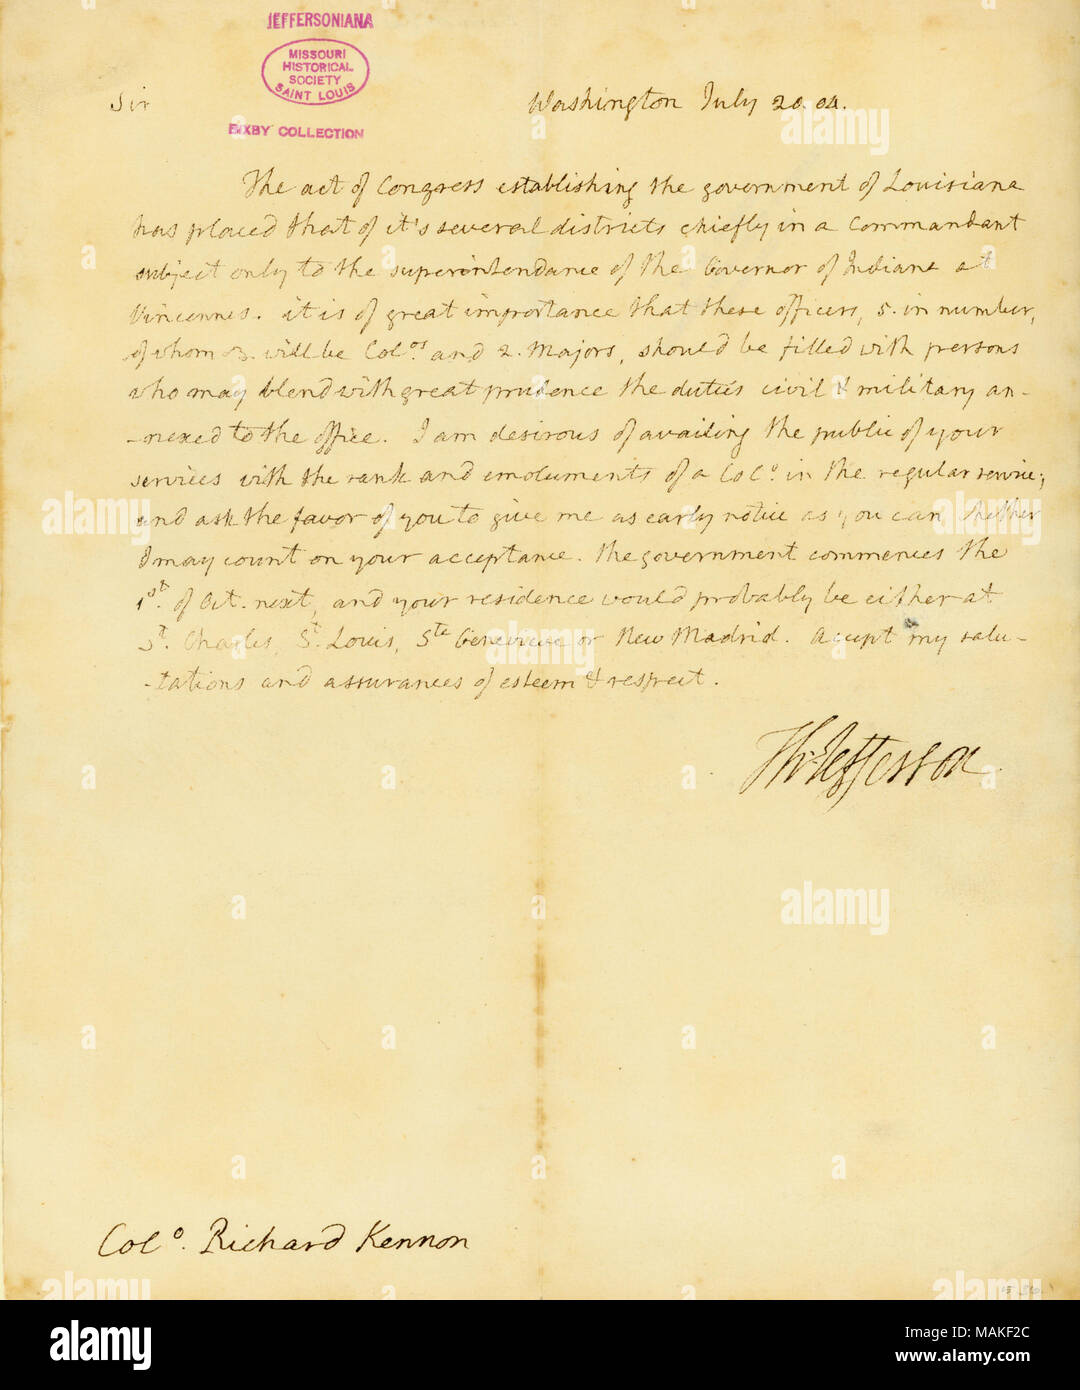 JEFFERSONIANA
MISSOURI
HISTORICAL
SOCIETY
SAINT LOUIS
BIXBY COLLECTION
Sir
Washington July 20. 04.
The act of Congress establishing the government of Louisiana
has placed that of it's several districts chiefly in a Commandant
subject only to the superintendance of the Governor of Indiana at
Vincennes. it is of great importance that these officers, 5. in number,
of whom 3. will be Colos and 2. Majors, should be filled with persons
who may blend with great prudence the duties civil & military an-
-nexed to the office. I am desirous of availing the public of your
services with the rank and emoluments of a Colo. in the regular service;
and ask the favor of you to give me as early notice as you can whether
I may count on your acceptance. the government commences the
1st. of Oct. next, and your residence would probably be either at
St. Charles, St. Louis, Ste Genevieve or New Madrid. Accept my salu-
-tations and assurances of esteem & respect.
Th: Jefferson
Colo. Richard Kennon
alamy
Image ID: MAKF2C
www.alamy.com